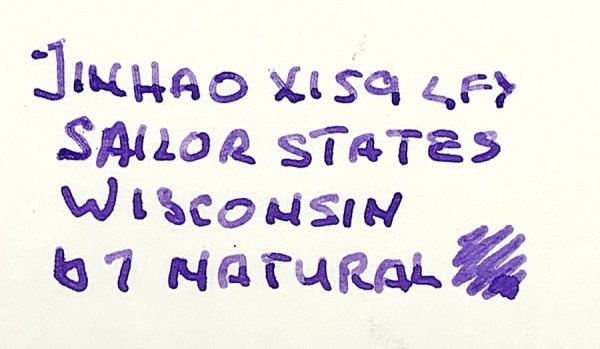 JINHAO X159 <F>
SAILOR STATES
WISCONSIN
67 NATURAL